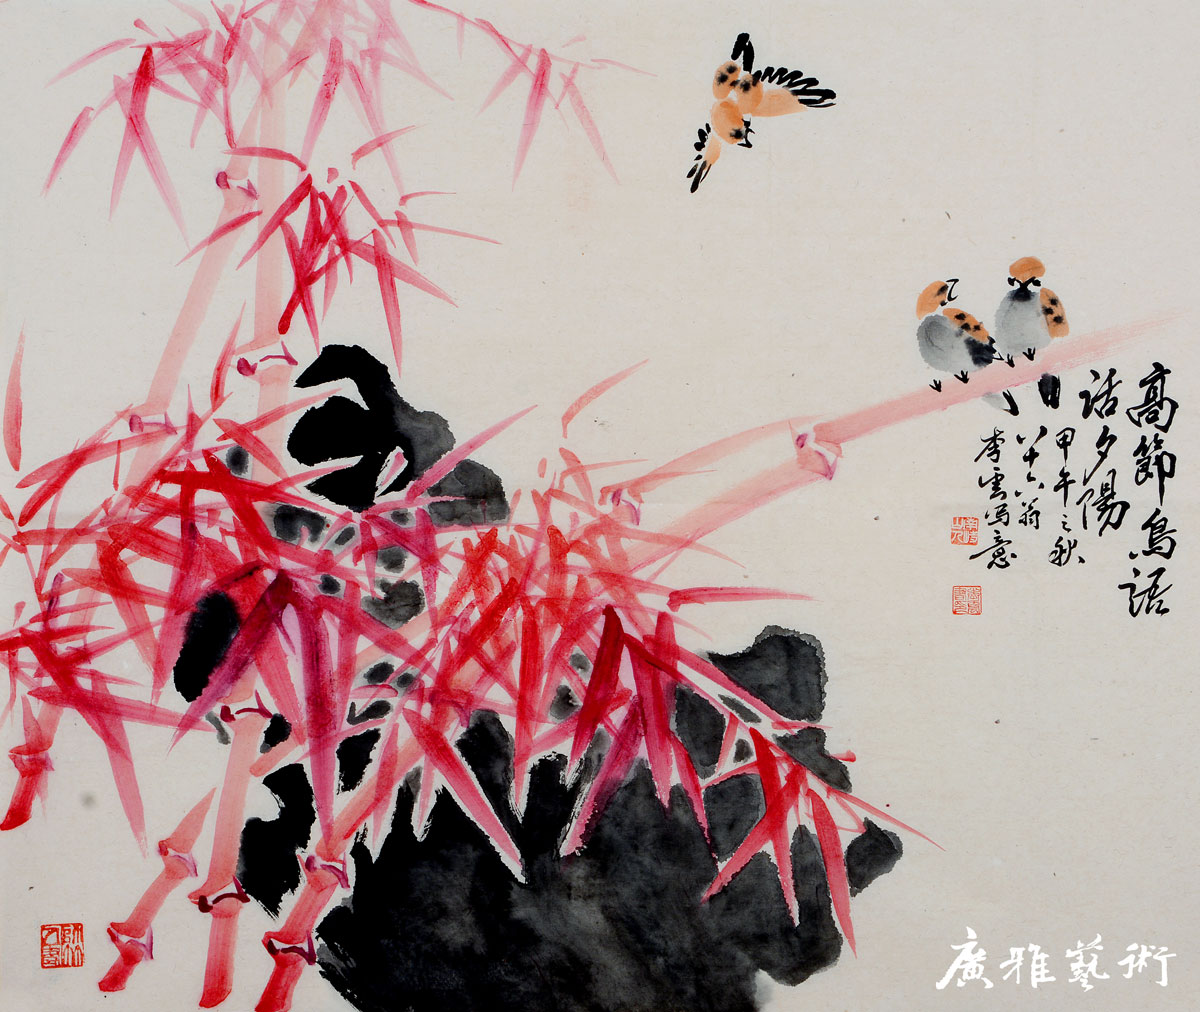 高節鳥語
話夕陽
甲午之秋
八十六翁
李雲写意
廣雅藝術